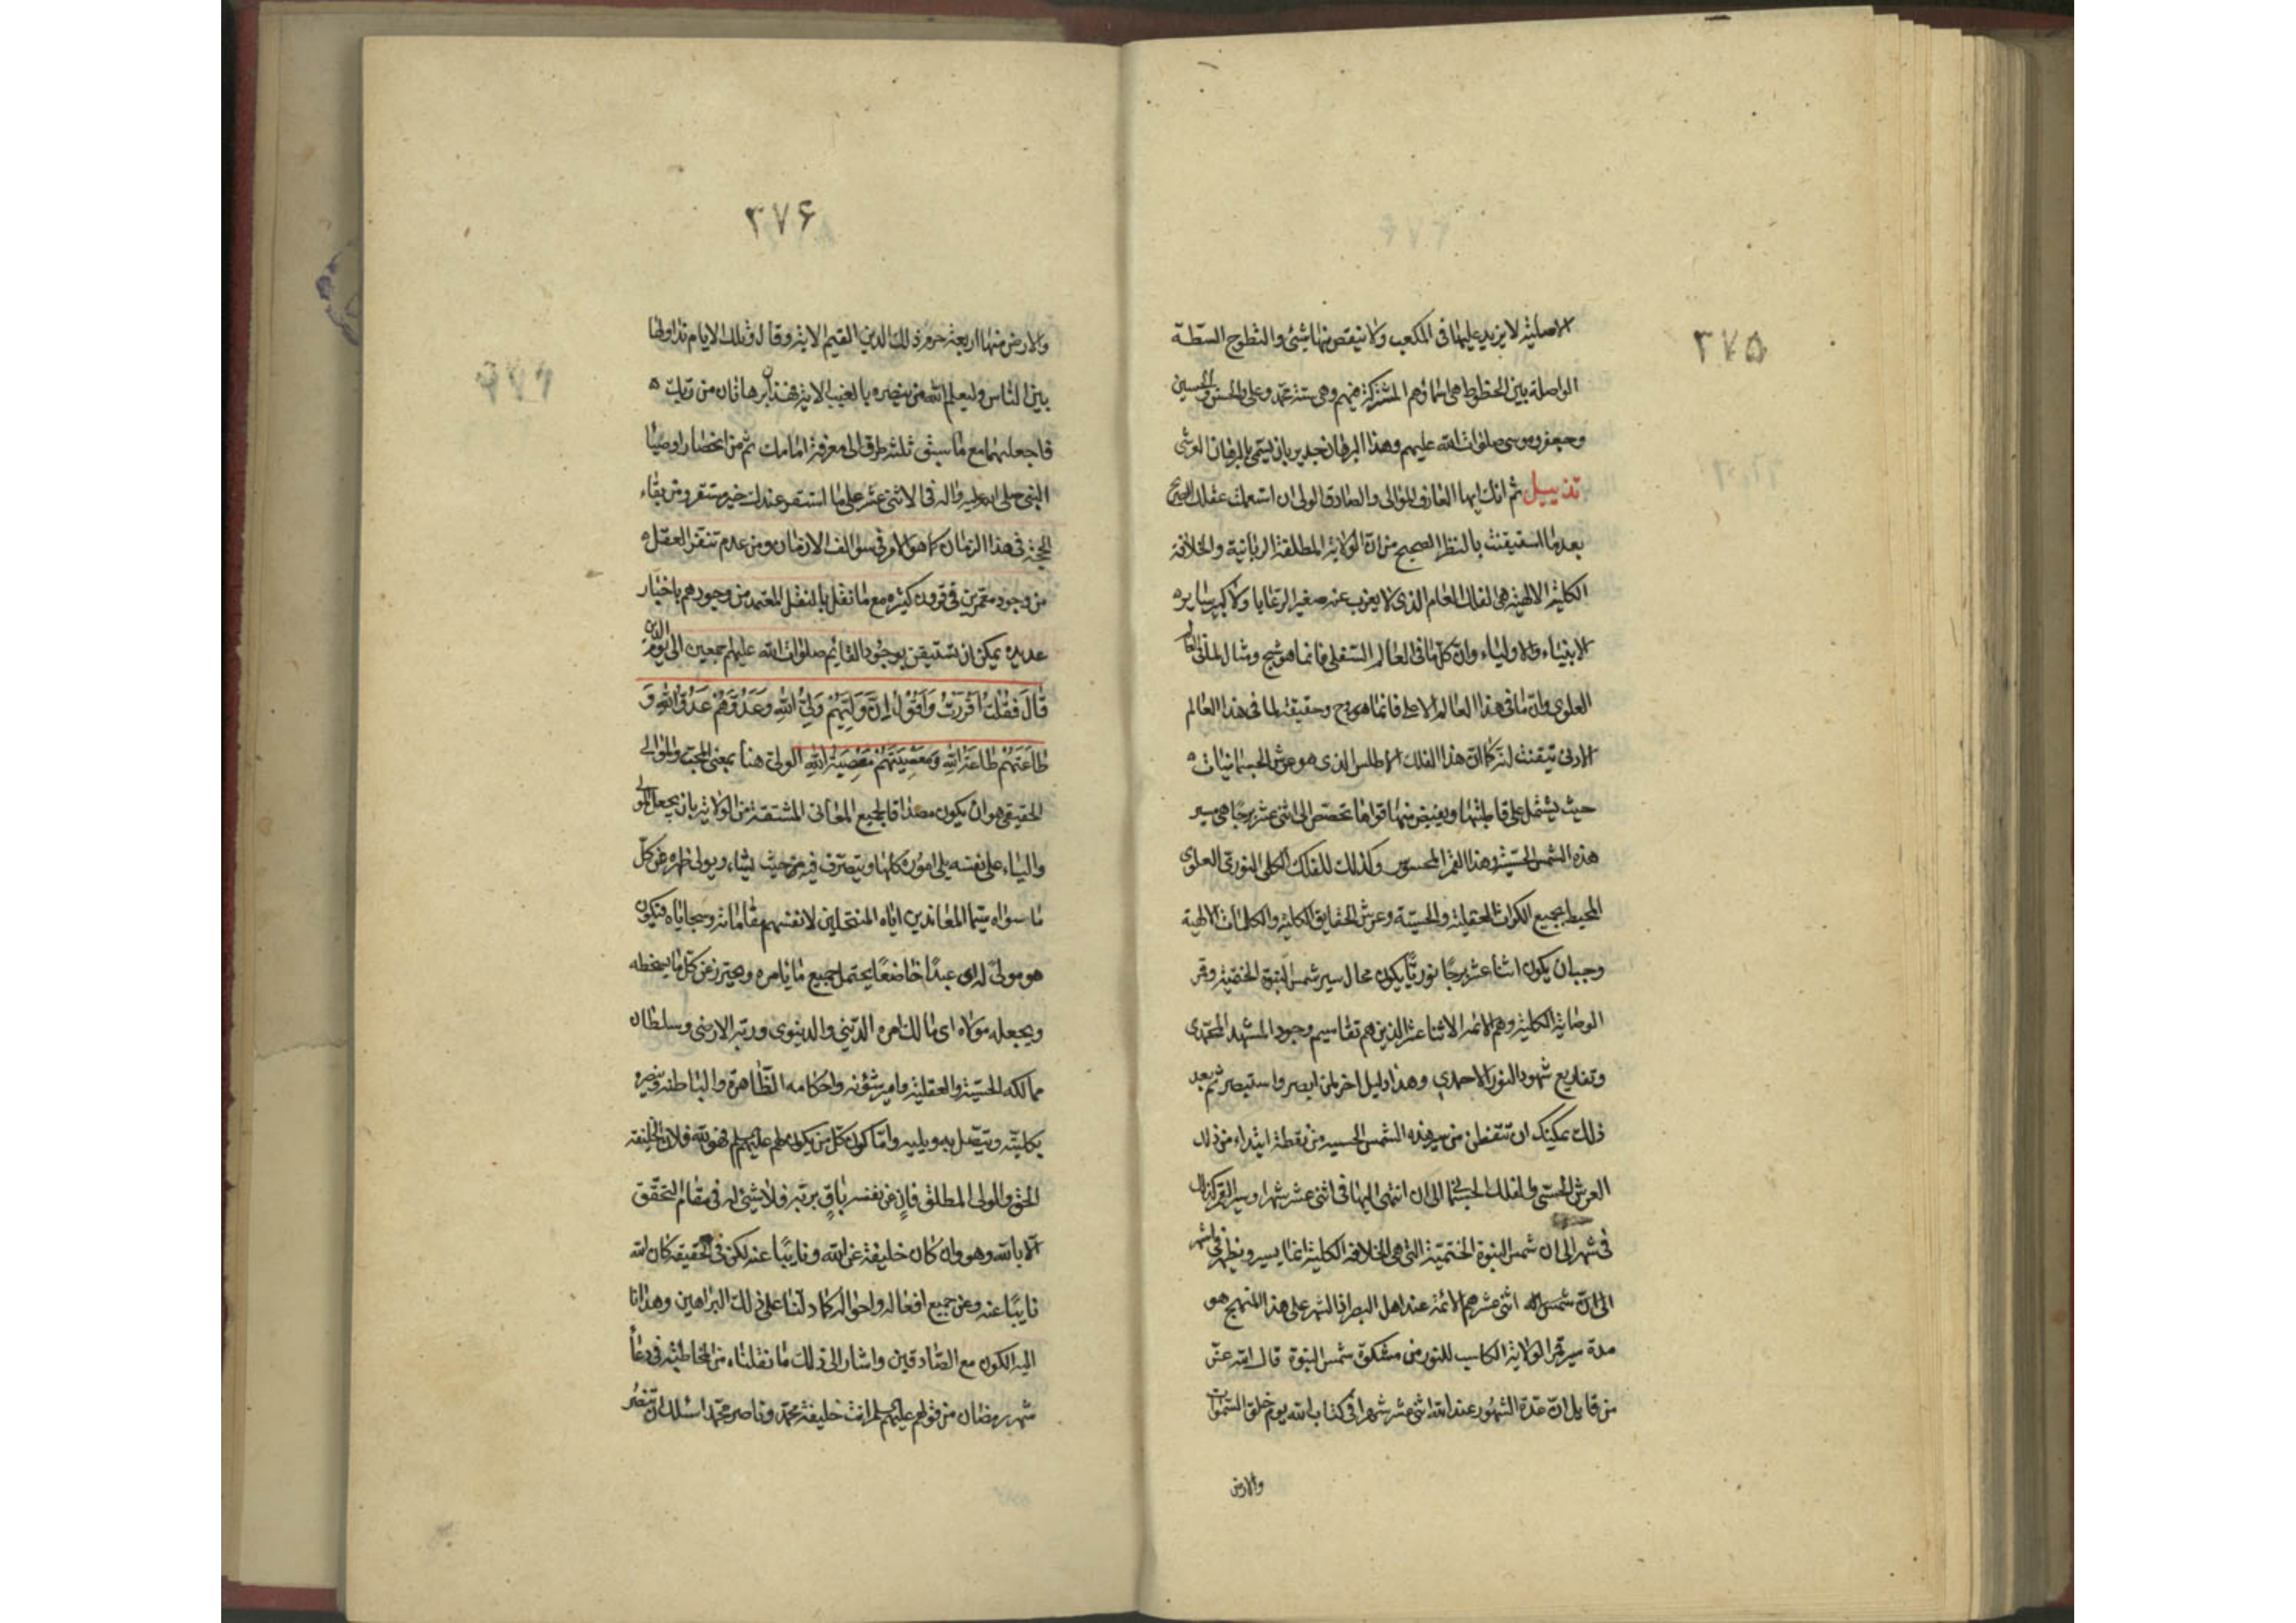 ٣٧۵
الاصلية لا يزيد عليها فى المكعب ولا ينقص منها شيئ والسطوح الستة
الواصلة بين الخطوط هى اسماؤهم المشتركة فيهم وهى ستة محمد وعلى والحسن والحسين
وجعفر وموسى صلوات الله عليهم وهذا البرهان جدير بان يسمى بالبرهان العرشى
تذييل ثم انك ايها العارف الموالى والصادق الولى ان استعملت عقلك الصحيح
بعدما استيقنت بالنظر الصحيح من ان الولاية المطلقة الربانية والخلافة
الكلية الالهية هى الفلك العام الذى لا يعزب عنه صغير الرعايا ولا كبير ساير
الانبياء والاولياء وان كل ما فى العالم السفلى فانما هو شبح ومثال لما فى العالم
العلوى وان ما فى هذا العالم الاعلى فانما هو روح وحقيقة لما فى هذا العالم
الادنى تيقنت انه كما ان هذا الفلك الاطلس الذى هو عرش الجسمانيات
حيث يشتمل على قاطبتها ويفيض منها قواها تخصص الى اثنى عشر برجا هى مسير
هذه الشمس الحسية وهذا القمر المحسوس وكذلك للفلك الكلى النورى العلوى
المحيط بجميع الكرات العقلية والحسية وعرش الحقايق الكلية والكلمات الالهية
وجب ان يكون اثنا عشر برجا نوريا يكون محال سير شمس النبوة الختمية وقمر
الوصاية الكلية وهم الائمة الاثنا عشر الذين هم تقاسيم وجود المشهد المحمدى
وتفاريع شهود النور الاحمدى وهذا دليل اخر لمن ابصر واستبصر ثم بعد
ذلك يمكنك ان تتفطن من سير هذه الشمس الحسية من نقطة ابتداء من ذلك
العرش الحسى والفلك الجسمانى الى ان انتهى اليها فى اثنى عشر شهرا وسير القمر كذلك
فى شهر الى ان شمس النبوة الختمية التى هى الخلافة الكلية انما يسير ويظهر فى
الى ان اثنى عشر هم الائمة عند اهل البصر فالشهر على هذا المنهج هو
مدة سير قمر الولاية الكاسب للنور من مشكوة شمس النبوة قال الله عز
من قايل ان عدة الشهور عند الله اثنى عشر شهرا فى كتاب الله يوم خلق السموات
والارض
٣٧۶
والارض منها اربعة حرم ذلك الدين القيم الاية وقال وتلك الايام نداولها
بين الناس وليعلم الله من ينصره بالغيب الاية فهذان برهانان من ربك
فاجعلهما مع ما سبق ثلثة طرق الى معرفة امامك ثم من انحصار اوصياء
النبى صلى الله عليه واله فى الاثنى عشر على ما استقر عندك خير مستقر ومن بقاء
الحجة فى هذا الزمان كما هو الامر فى سوالف الازمان ومن عدم تنفر العقل
من وجود معمرين فى قرون كثيرة مع ما نقل بالنقل المعتمد من وجودهم باخبار
عديدة يمكن ان تستيقن بوجود القايم صلوات الله عليهم اجمعين الى يوم الدين
قَالَ فَقُلْتُ اَقْرَرْتُ وَاَقُوْلُ اِنَّ وَلِيَّهُمْ وَلِىُّ اللهِ وَعَدُوَّهُمْ عَدُوُّ اللهِ وَ
طَاعَتَهُمْ طَاعَةُ اللهِ وَمَعْصِيَتَهُمْ مَعْصِيَةُ اللهِ الولى هنا بمعنى المحب والموالى
الحقيقى هو ان يكون مصداقا لجميع المعانى المشتقة من الولاية بان يجعل المولى
واليا على نفسه يلى اموره كلها ويتصرف فيه من حيث يشاء ويولى ظهره عن كل
ما سواه سيما المعاندين اياه المنتحلين لانفسهم مقاماته وسجاياه فيكون
هو مولى له اى عبدا خاضعا يحتمل جميع ما يامره ويحترز عن كل ما يسخطه
ويجعله مولاه اى مالك امره الدينى والدنيوى وربه الارضى وسلطان
ممالكه الحسية والعقلية وامير شؤنه واحكامه الظاهرة والباطنة وينصره
بكليته ويتصل به ويليه واما كون كل من يكون وليهم عليهم السلم فهو لله فلان الخليفة
الحق والولى المطلق فان عن نفسه باق بربه فلا شيئ له فى مقام التحقق
الا بالله وهو وان كان خليفة عن الله ونايبا عنه لكن فى الحقيقة كان الله
نايبا عنه وعن جميع افعاله واحواله كما دلنا على ذلك البراهين وهدانا
اليه الكون مع الصادقين واشار الى ذلك ما نقلناه من المخاطبة فى دعاء
شهر رمضان من قولهم عليهم السلم انت خليفة محمد وناصر محمد اسئلك ان تنصر